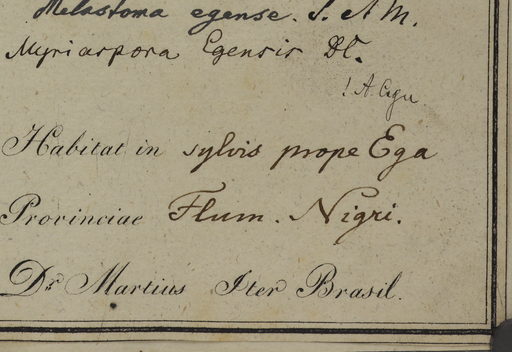 Melastoma egense. S. A M.
Myriaspora Egensis DC.
! A
Habitat in sylvis prope Ega
Provinciae Flum. Nigri.
Dr. Martius Iter Brasil.